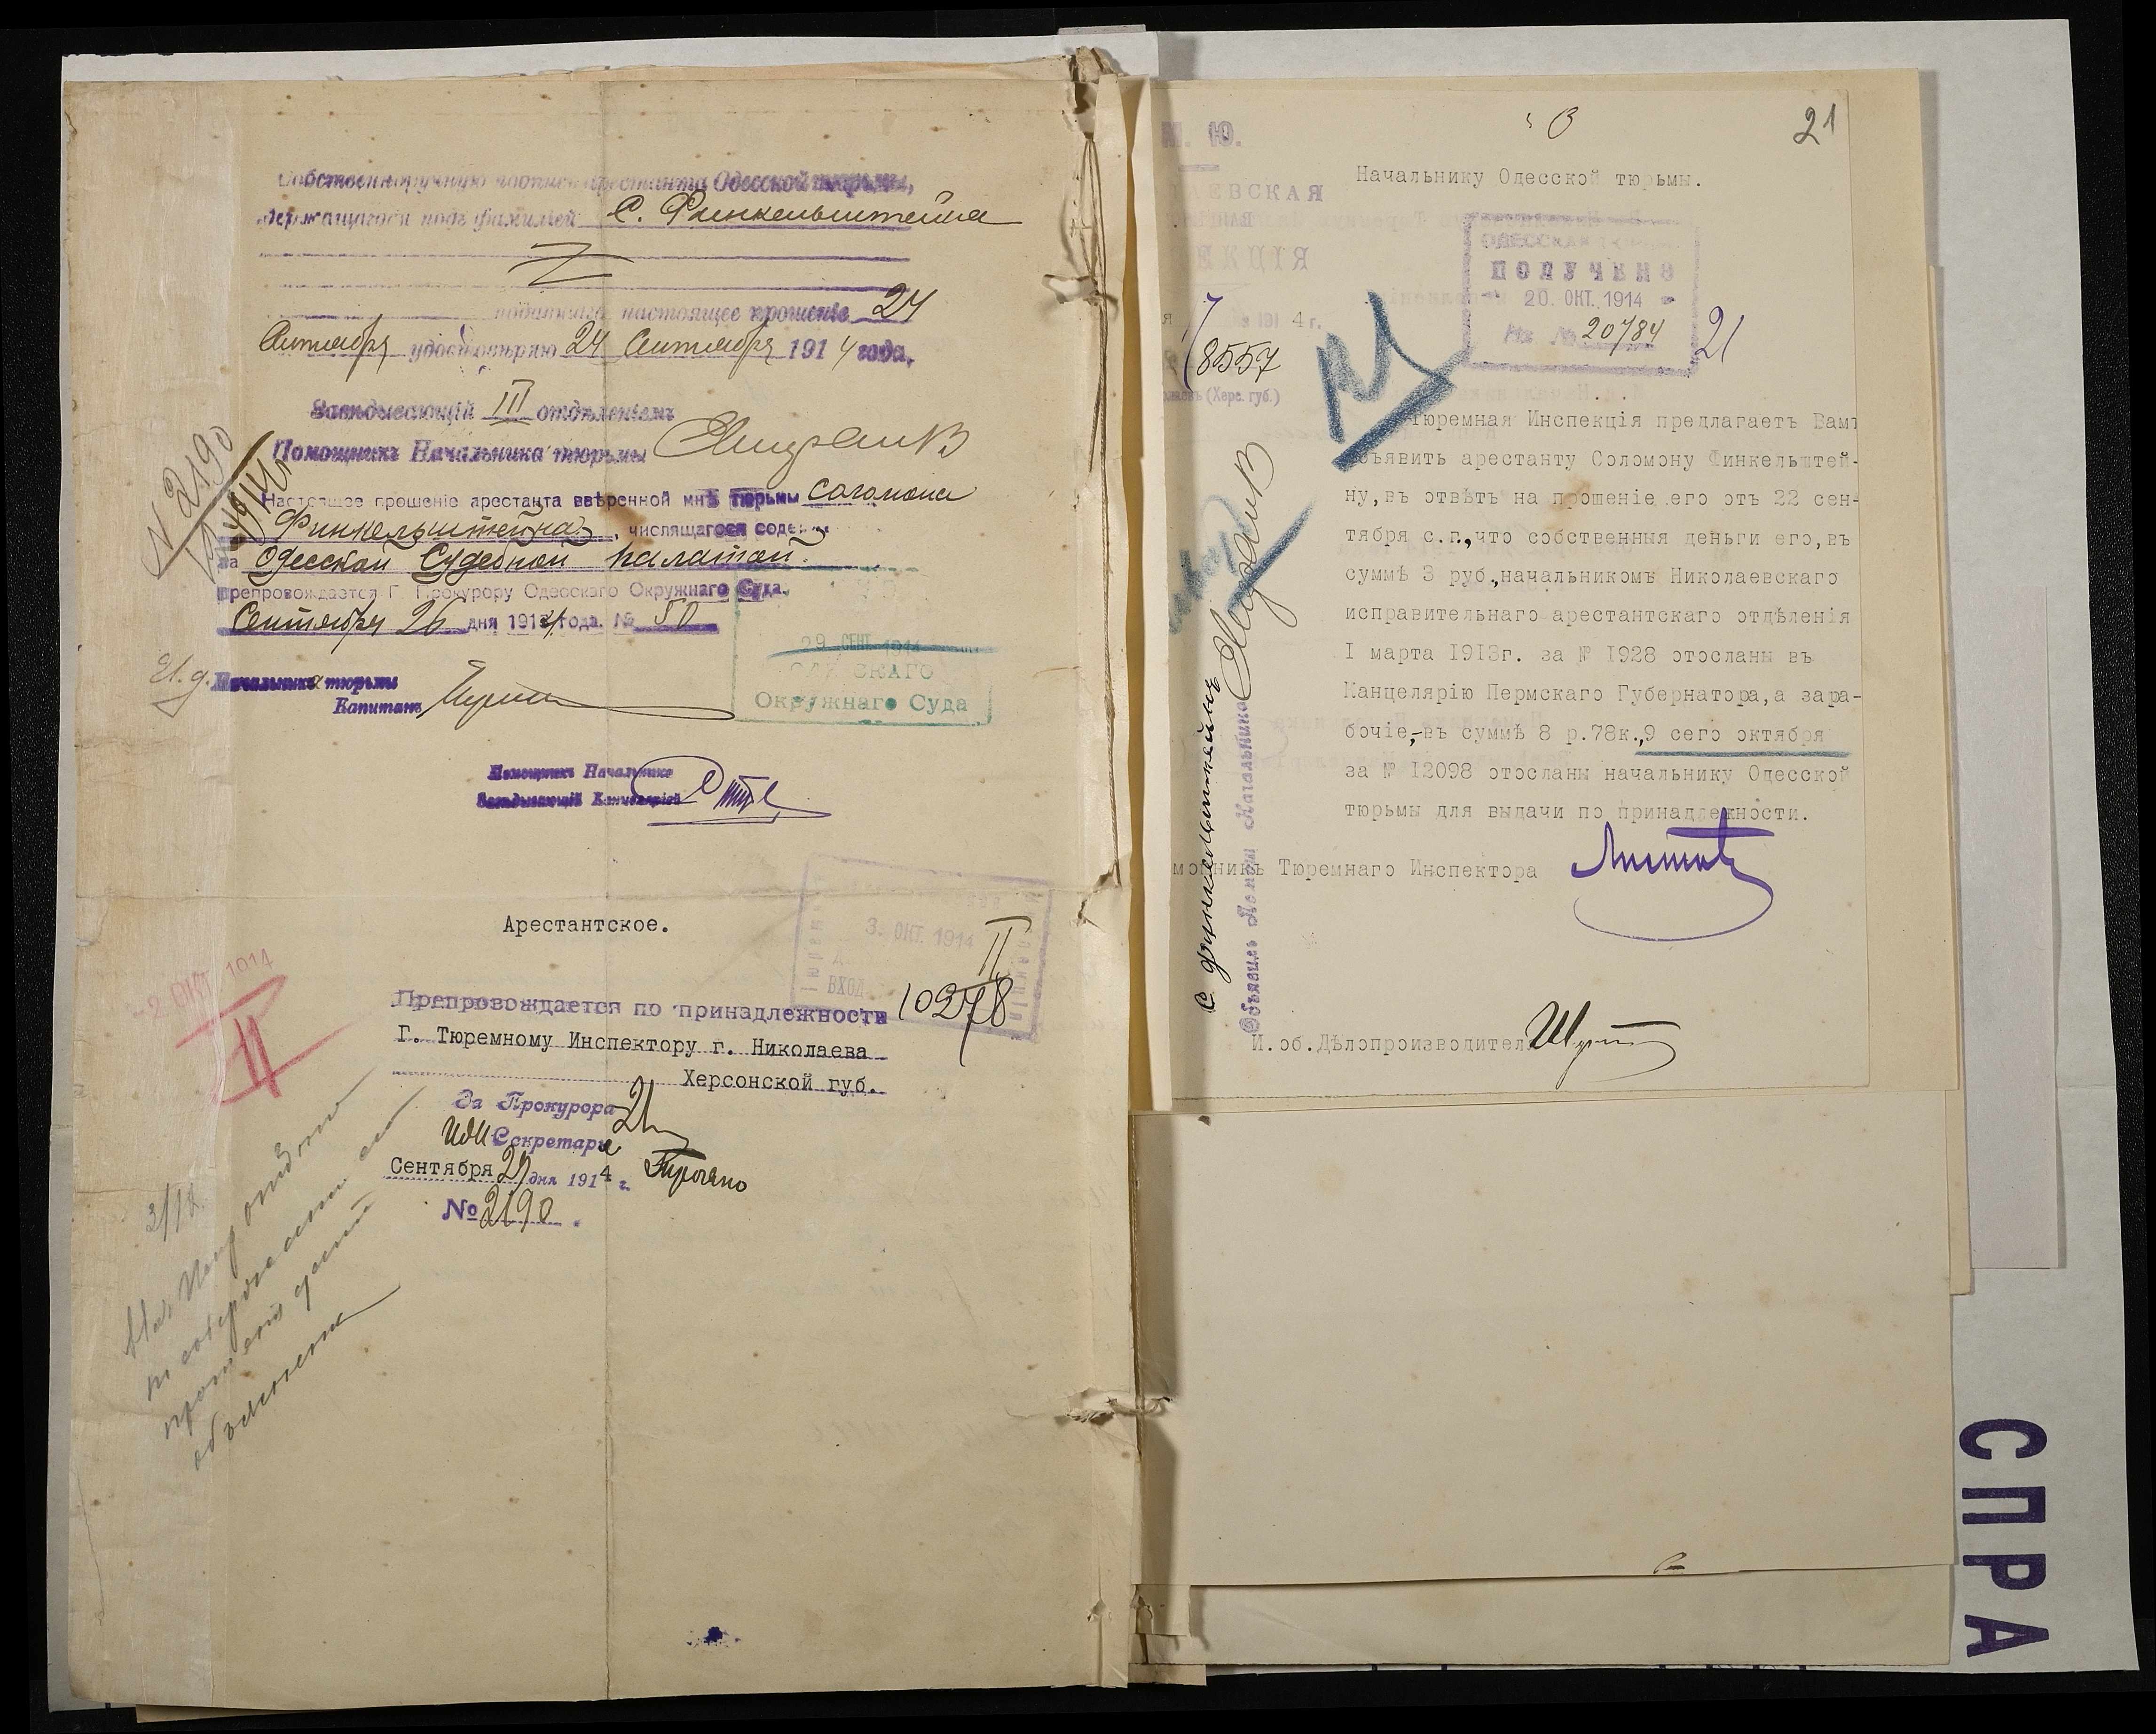 Собственноручную подпись арестанта Одесской тюрьмы,
держащагося подъ фамиліей С. Финкельштейна
подавшаго настоящее прошеніе 24
Сентября удостовѣряю 24 Сентября 1914 года.
Завѣдывающій III отдѣленіемъ
Помощникъ Начальника тюрьмы
N 2190
Настоящее прошеніе арестанта ввѣренной мнѣ тюрьмы Соломона
Финкельштейна, числящагося содер.
за Одесской Судебной палатой.
препровождается Г. Прокурору Одесскаго Окружнаго Суда.
Сентября 26 дня 1914 года. № 50
29 СЕНТ. 1914
ОДЕССКАГО
Окружнаго Суда
И. д. Начальника тюрьмы
Капитанъ
Помощникъ Начальника
Завѣдывающій Канцеляріей
Арестантское.
3. ОКТ. 1914
ВХОД.
II
10278
-2 ОКТ 1914
II
Препровождается по принадлежности
Г. Тюремному Инспектору г. Николаева
Херсонской губ.
За Прокурора
Секретаря
Сентября 29 дня 1914 г.
№ 2190.
3/X
объясненія
21
М. Ю.
ЛАЕВСКАЯ
ЕКЦІЯ
191 4 г.
18557
(Херс. губ.)
Начальнику Одесской тюрьмы.
ОДЕССКАЯ
ПОЛУЧЕНО
20. ОКТ. 1914
Вх. № 20784
21
Тюремная Инспекція предлагаетъ Вамъ
объявить арестанту Соломону Финкельштей-
ну, въ отвѣтъ на прошеніе его отъ 22 сен-
тября с.г., что собственныя деньги его, въ
суммѣ 3 руб., начальникомъ Николаевскаго
исправительнаго арестантскаго отдѣленія
I марта 1913г. за № 1928 отосланы въ
Канцелярію Пермскаго Губернатора, а зара-
бочіе,-въ суммѣ 8 р.78к., 9 сего октября
за № 12098 отосланы начальнику Одесской
тюрьмы для выдачи по принадлежности.
мощникъ Тюремнаго Инспектора
И.об.Дѣлопроизводителя
С Финкельштейнъ
Объявилъ Помощ. Начальника
СПРА